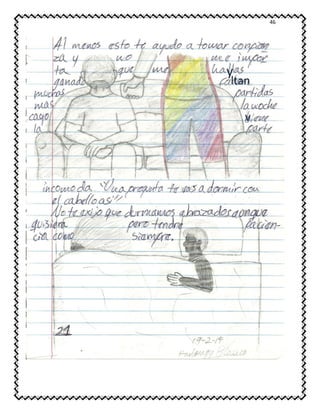 46
Al menos esto te ayudo a tomar confian
za y no me impor
ta que me hayas
ganado faltan
muchas partidas
mas la noche
cayo viene
la parte
incomoda "Una pregunta te vas a dormir con
el cabello asi"
No te exijo que durmamos abrazados aunque
quisiera pero tendre pacien-
cia como siempre.
21
19-2-19